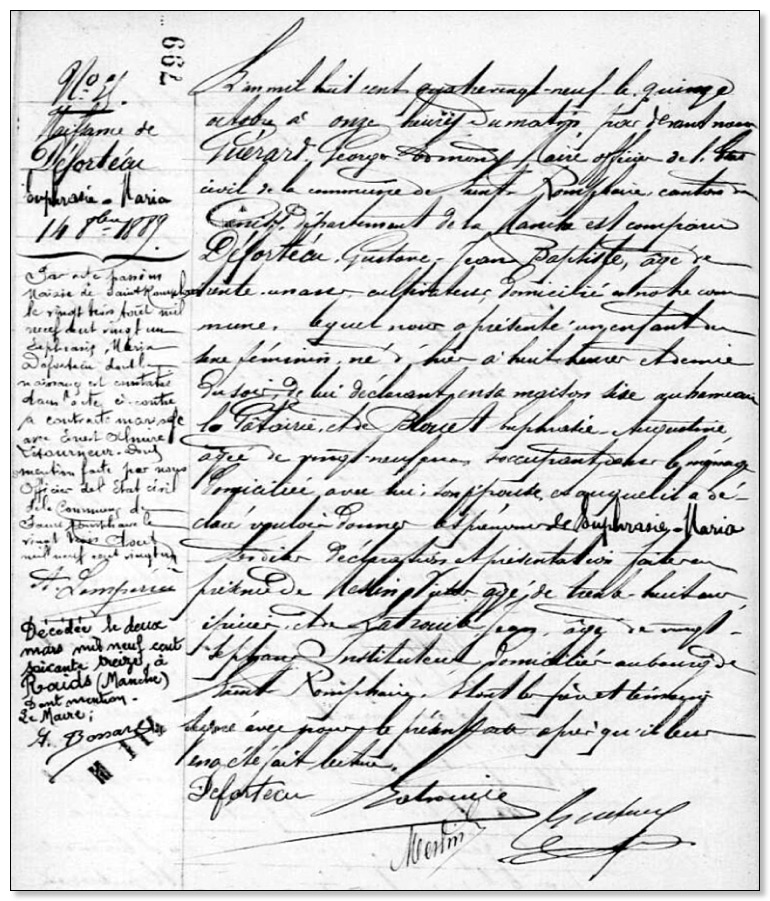 662
Naissance de
Déforteau
Euphrasie-Maria
14 8bre 1889
Par acte passé en
Mairie de Saint Romphaire
le vingt trois Août mil
neuf cent vingt un
Euphrasie, Maria
Deforteau dont la
naissance est constatée
dans l'acte ci-contre
a contracté mariage
avec Ernest
Létourneur. Dont
mention faite par nous
Officier de l'État civil
de la Commune de
Saint Romphaire le
vingt trois Août
mil neuf cent vingt un
Décédée le deux
mars mil neuf cent
soixante treize à
Raids (Manche)
Dont mention.
Le Maire;
L'an mil huit cent quatre vingt-neuf le quinze
octobre à onze heures du matin par devant nous
Guérard, George Armand, Maire officier de l'Etat
civil de la commune de Saint Romphaire, canton de
Canisy, Département de la Manche est comparu
Déforteau, Gustave, Jean Baptiste, âgé de
trente-un ans, cultivateur, domicilié en notre com
mune, lequel nous a présenté un enfant du
sexe féminin, né d'hier à huit heures et demie
du soir, de lui déclarant, en sa maison sise au hameau
la et de Blouet Euphrasie Augustine
âgée de vingt-neuf ans, s'occupant du ménage
domiciliée avec lui, son épouse, et auquel il a dé-
claré vouloir donner les prénoms de Euphrasie-Maria
Lesdites déclaration et présentation faites en
présence de âgé de trente-huit ans
épicier, et de Latrouite Jean, âgé de vingt-
sept ans Instituteur domiciliés au bourg de
Saint Romphaire. Et ont le père et témoins
signé avec nous le présent acte après qu'il leur
en a été fait lecture.
Deforteau Latrouite